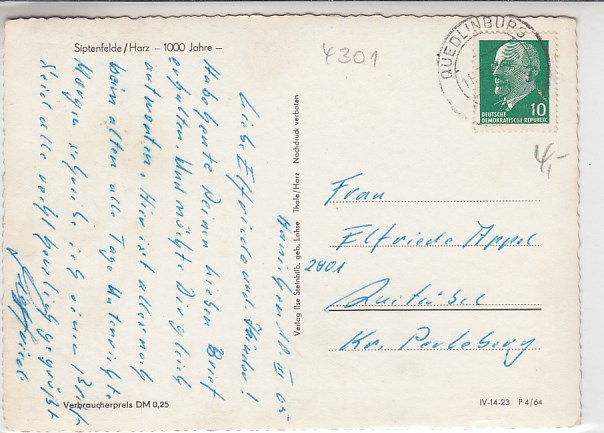 Siptenfelde/Harz – 1000 Jahre –
4301
QUEDLINBURG
10
DEUTSCHE
DEMOKRATISCHE REPUBLIK
4,-
III 65
Liebe Elfriede und Kinder!
Habe heute Deinen lieben Brief
erhalten. Und möchte Dir gleich
antworten. Hier ist alles noch
beim alten alle Tage Unterricht
Morgen schreibe ich einen Brief
Seid alle recht herzlich gegrüßt
Verlag Ilse Steinhilb, geb. Lohse Thale/Harz Nachdruck verboten
Frau
Elfriede Appel
2901
Kr. Perleberg
Verbraucherpreis DM 0,25
IV-14-23 P 4/64